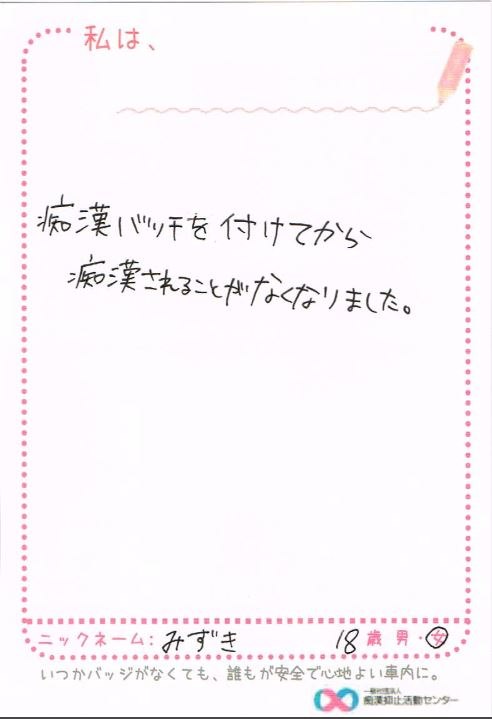 私は、
痴漢バッチを付けてから
痴漢されることがなくなりました。
ニックネーム: みずき 18歳 男・女
いつかバッジがなくても、誰もが安全で心地よい車内に。
一般社団法人
痴漢抑止活動センター